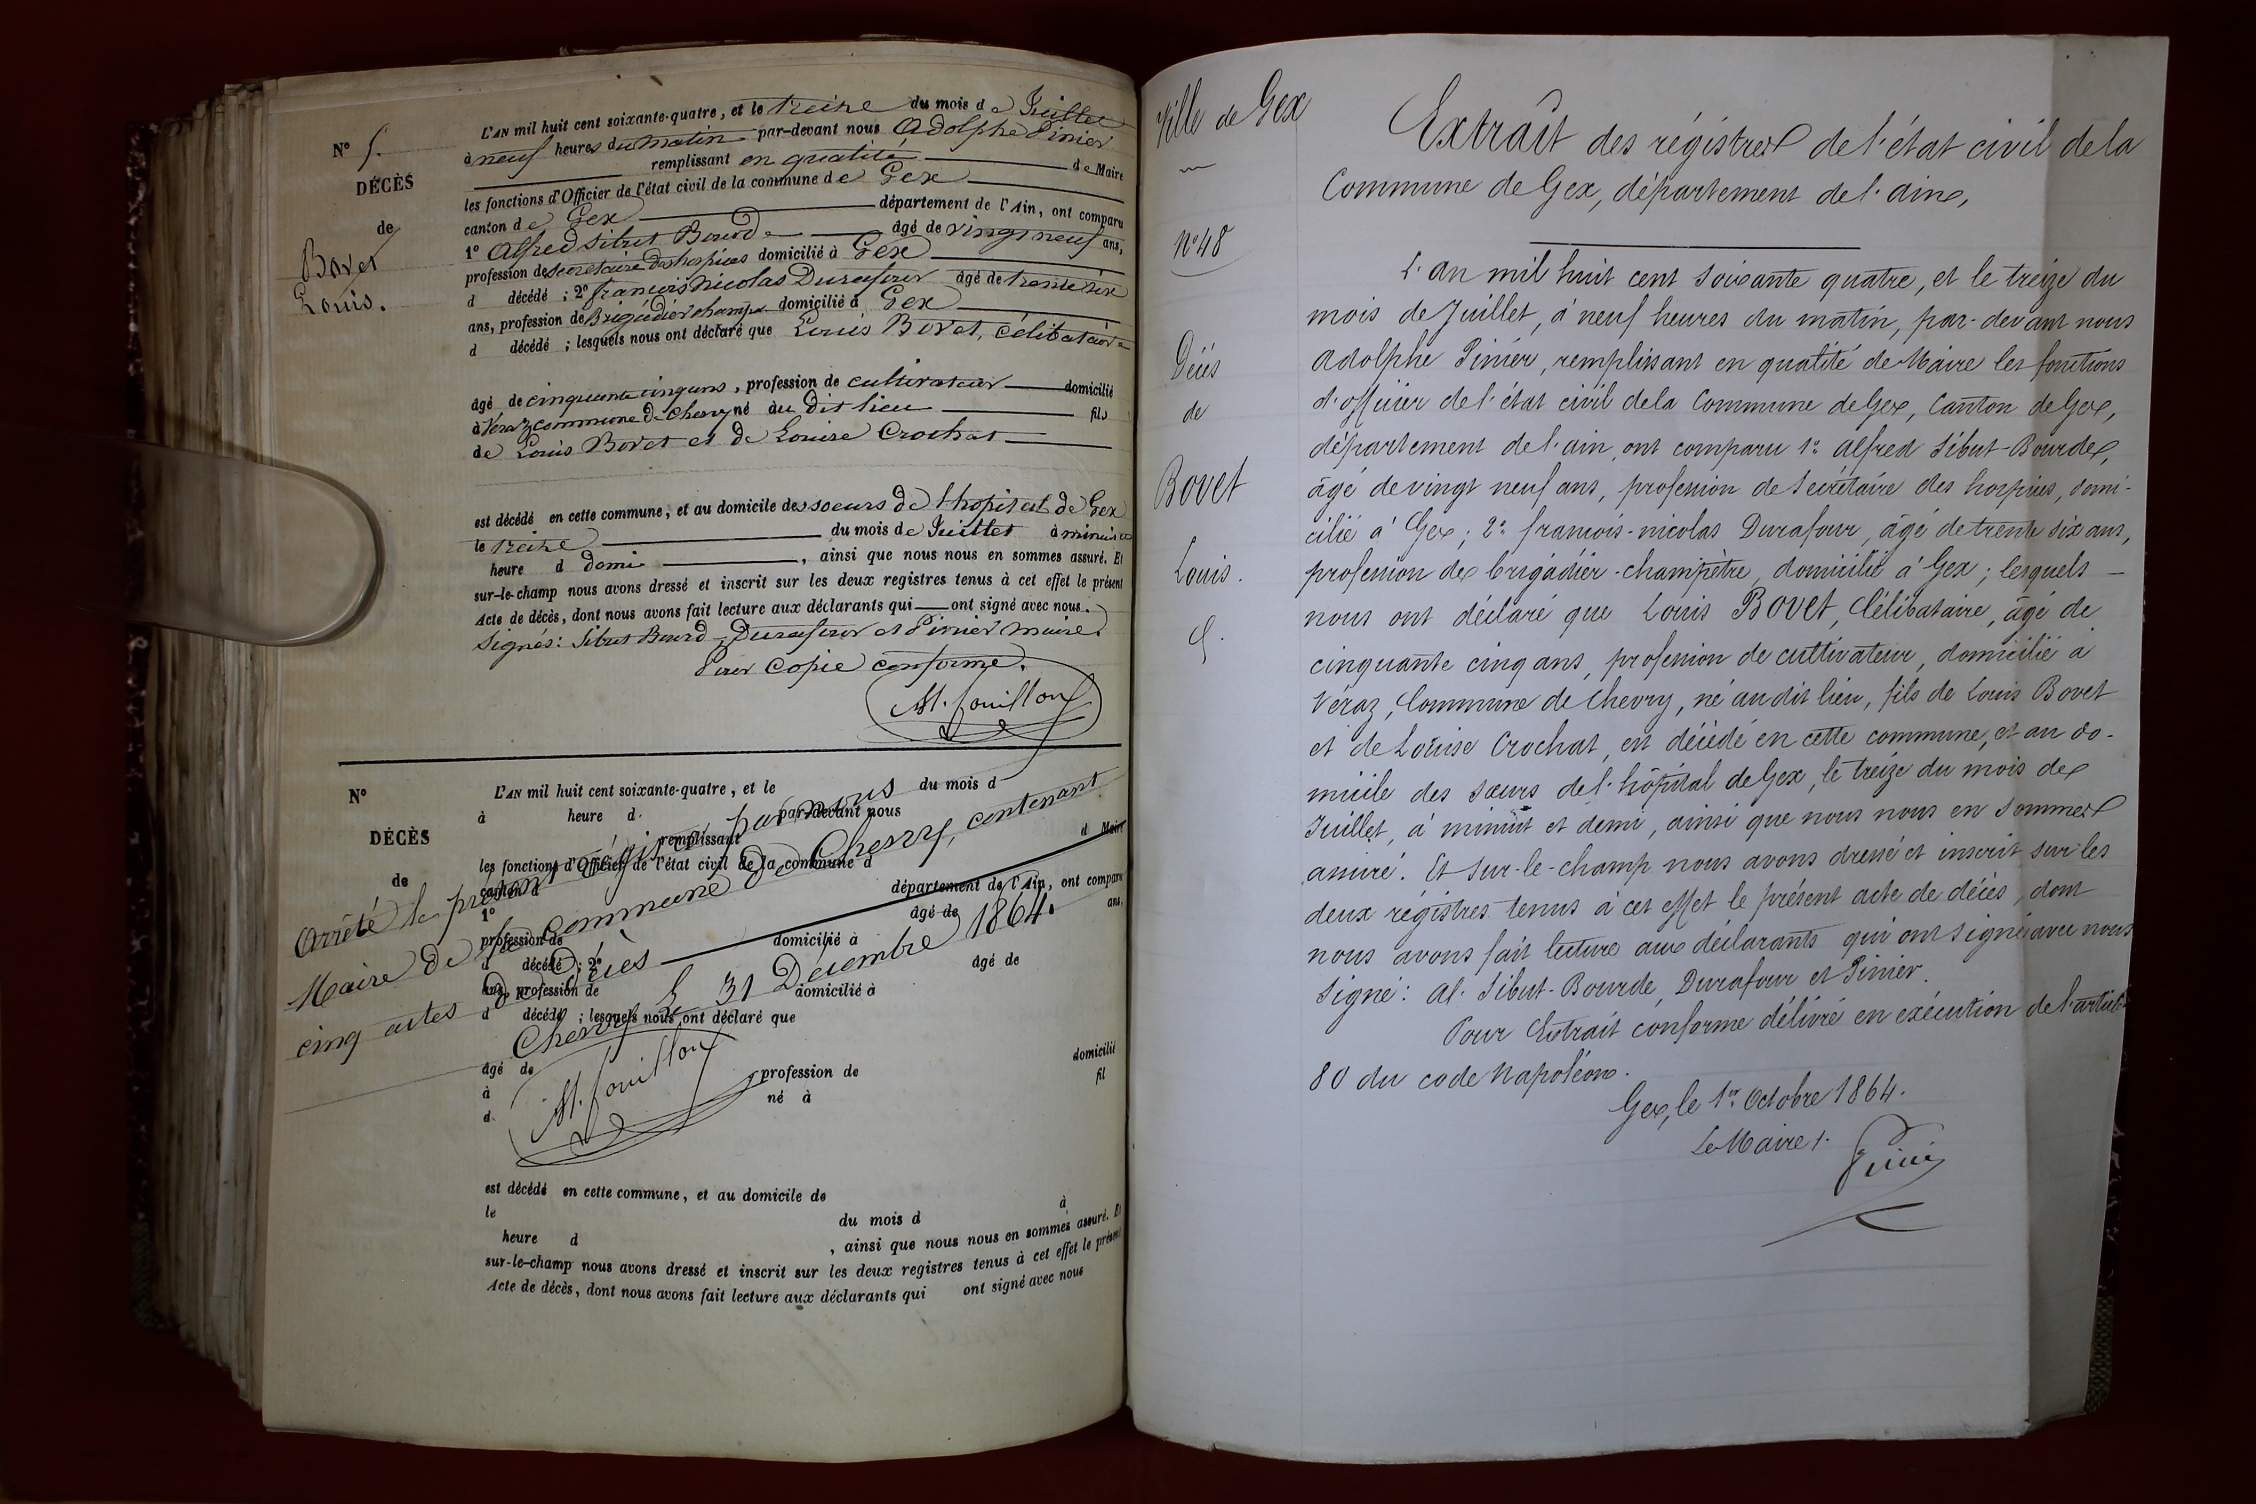 N° 5.
DÉCÈS
de
Bovet
Louis.
L'AN mil huit cent soixante-quatre, et le treize du mois de Juillet
à neuf heures du matin par-devant nous Adolphe Pinier
remplissant en qualité de Maire
les fonctions d'Officier de l'état civil de la commune de Gex
canton de Gex département de l'Ain, ont comparu
1° Alfred Sibut Bourde âgé de vingt neuf ans,
profession de secrétaire des hospices domicilié à Gex
d décédé ; 2° françois Nicolas Durafour âgé de trente six
ans, profession de Brigadier champe domicilié à Gex
d décédé ; lesquels nous ont déclaré que Louis Bovet, célibataire
âgé de cinquante cinq ans, profession de cultivateur domicilié
à Véraz commune de Chevry né au dit lieu fils
de Louis Bovet et de Louise Crochat
est décédé en cette commune, et au domicile des soeurs de l'hopital de Gex
le treize du mois de Juillet à minuit
heure d demi , ainsi que nous nous en sommes assuré. Et
sur-le-champ nous avons dressé et inscrit sur les deux registres tenus à cet effet le présent
Acte de décès, dont nous avons fait lecture aux déclarants qui ont signé avec nous.
Signés: Sibut Bourd, Durafour et Pinier maire.
Pour copie conforme.
M. fouilloux
N°
DÉCÈS
de
L'AN mil huit cent soixante-quatre, et le du mois d
à heure d par-devant nous
remplissant d Maire
les fonctions d'Officier de l'état civil de la commune d
canton d département de l'Ain, ont comparu
1° âgé de ans,
profession de domicilié à
d décédé ; 2° âgé de
ans, profession de domicilié à
d décédé ; lesquels nous ont déclaré que
âgé de profession de domicilié
à né à fil
d
Arrêté le présent régistre par nous
Maire de la commune de Chevry, contenant
cinq actes de décès
Chevry le 31 Décembre 1864.
M. fouilloux
est décédé en cette commune, et au domicile de
le du mois d à
heure d , ainsi que nous nous en sommes assuré. Et
sur-le-champ nous avons dressé et inscrit sur les deux registres tenus à cet effet le présent
Acte de décès, dont nous avons fait lecture aux déclarants qui ont signé avec nous
Ville de Gex
N° 48
Décès
de
Bovet
Louis.
Extrait des régistres de l'état civil de la
Commune de Gex, département de l'ain,
L'an mil huit cent soixante quatre, et le treize du
mois de Juillet, à neuf heures du matin, par-devant nous
adolphe Pinier, remplissant en qualité de Maire les fonctions
d'officier de l'état civil de la Commune de Gex, Canton de Gex,
département de l'ain, ont comparu 1° alfred Sibut-Bourde,
âgé de vingt neuf ans, profession de Secrétaire des hospices, domi-
cilié à Gex; 2° francois-nicolas Durafour, âgé de trente six ans,
profession de brigadier-champêtre, domicilié à Gex; lesquels
nous ont déclaré que Louis BOVET, Célibataire, âgé de
cinquante cinq ans, profession de cultivateur, domicilié à
Véraz, Commune de Chevry, né au dit lieu, fils de Louis Bovet
et de Louise Crochat, est décédé en cette commune, et au do-
micile des sœurs de l'hôpital de Gex, le treize du mois de
Juillet, à minuit et demi, ainsi que nous nous en sommes
assuré. Et sur-le-champ nous avons dressé et inscrit sur les
deux régistres tenus à cet effet le présent acte de décès, dont
nous avons fait lecture aux déclarants qui ont signé avec nous
Signé: Al. Sibut-Bourde, Durafour et Pinier.
Pour Extrait conforme délivré en exécution de l'article
80 du code Napoléon.
Gex, le 1er Octobre 1864.
Le Maire.
Pinier